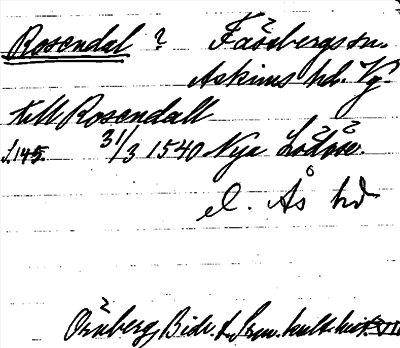 Rosendal ? Fässbergs sn.
Askims hd. Vg.
till Rosendall
s. 145. 31/3 1540 Nya Lödöse.
el. Ås hd
Bidr. t. kult. hist.